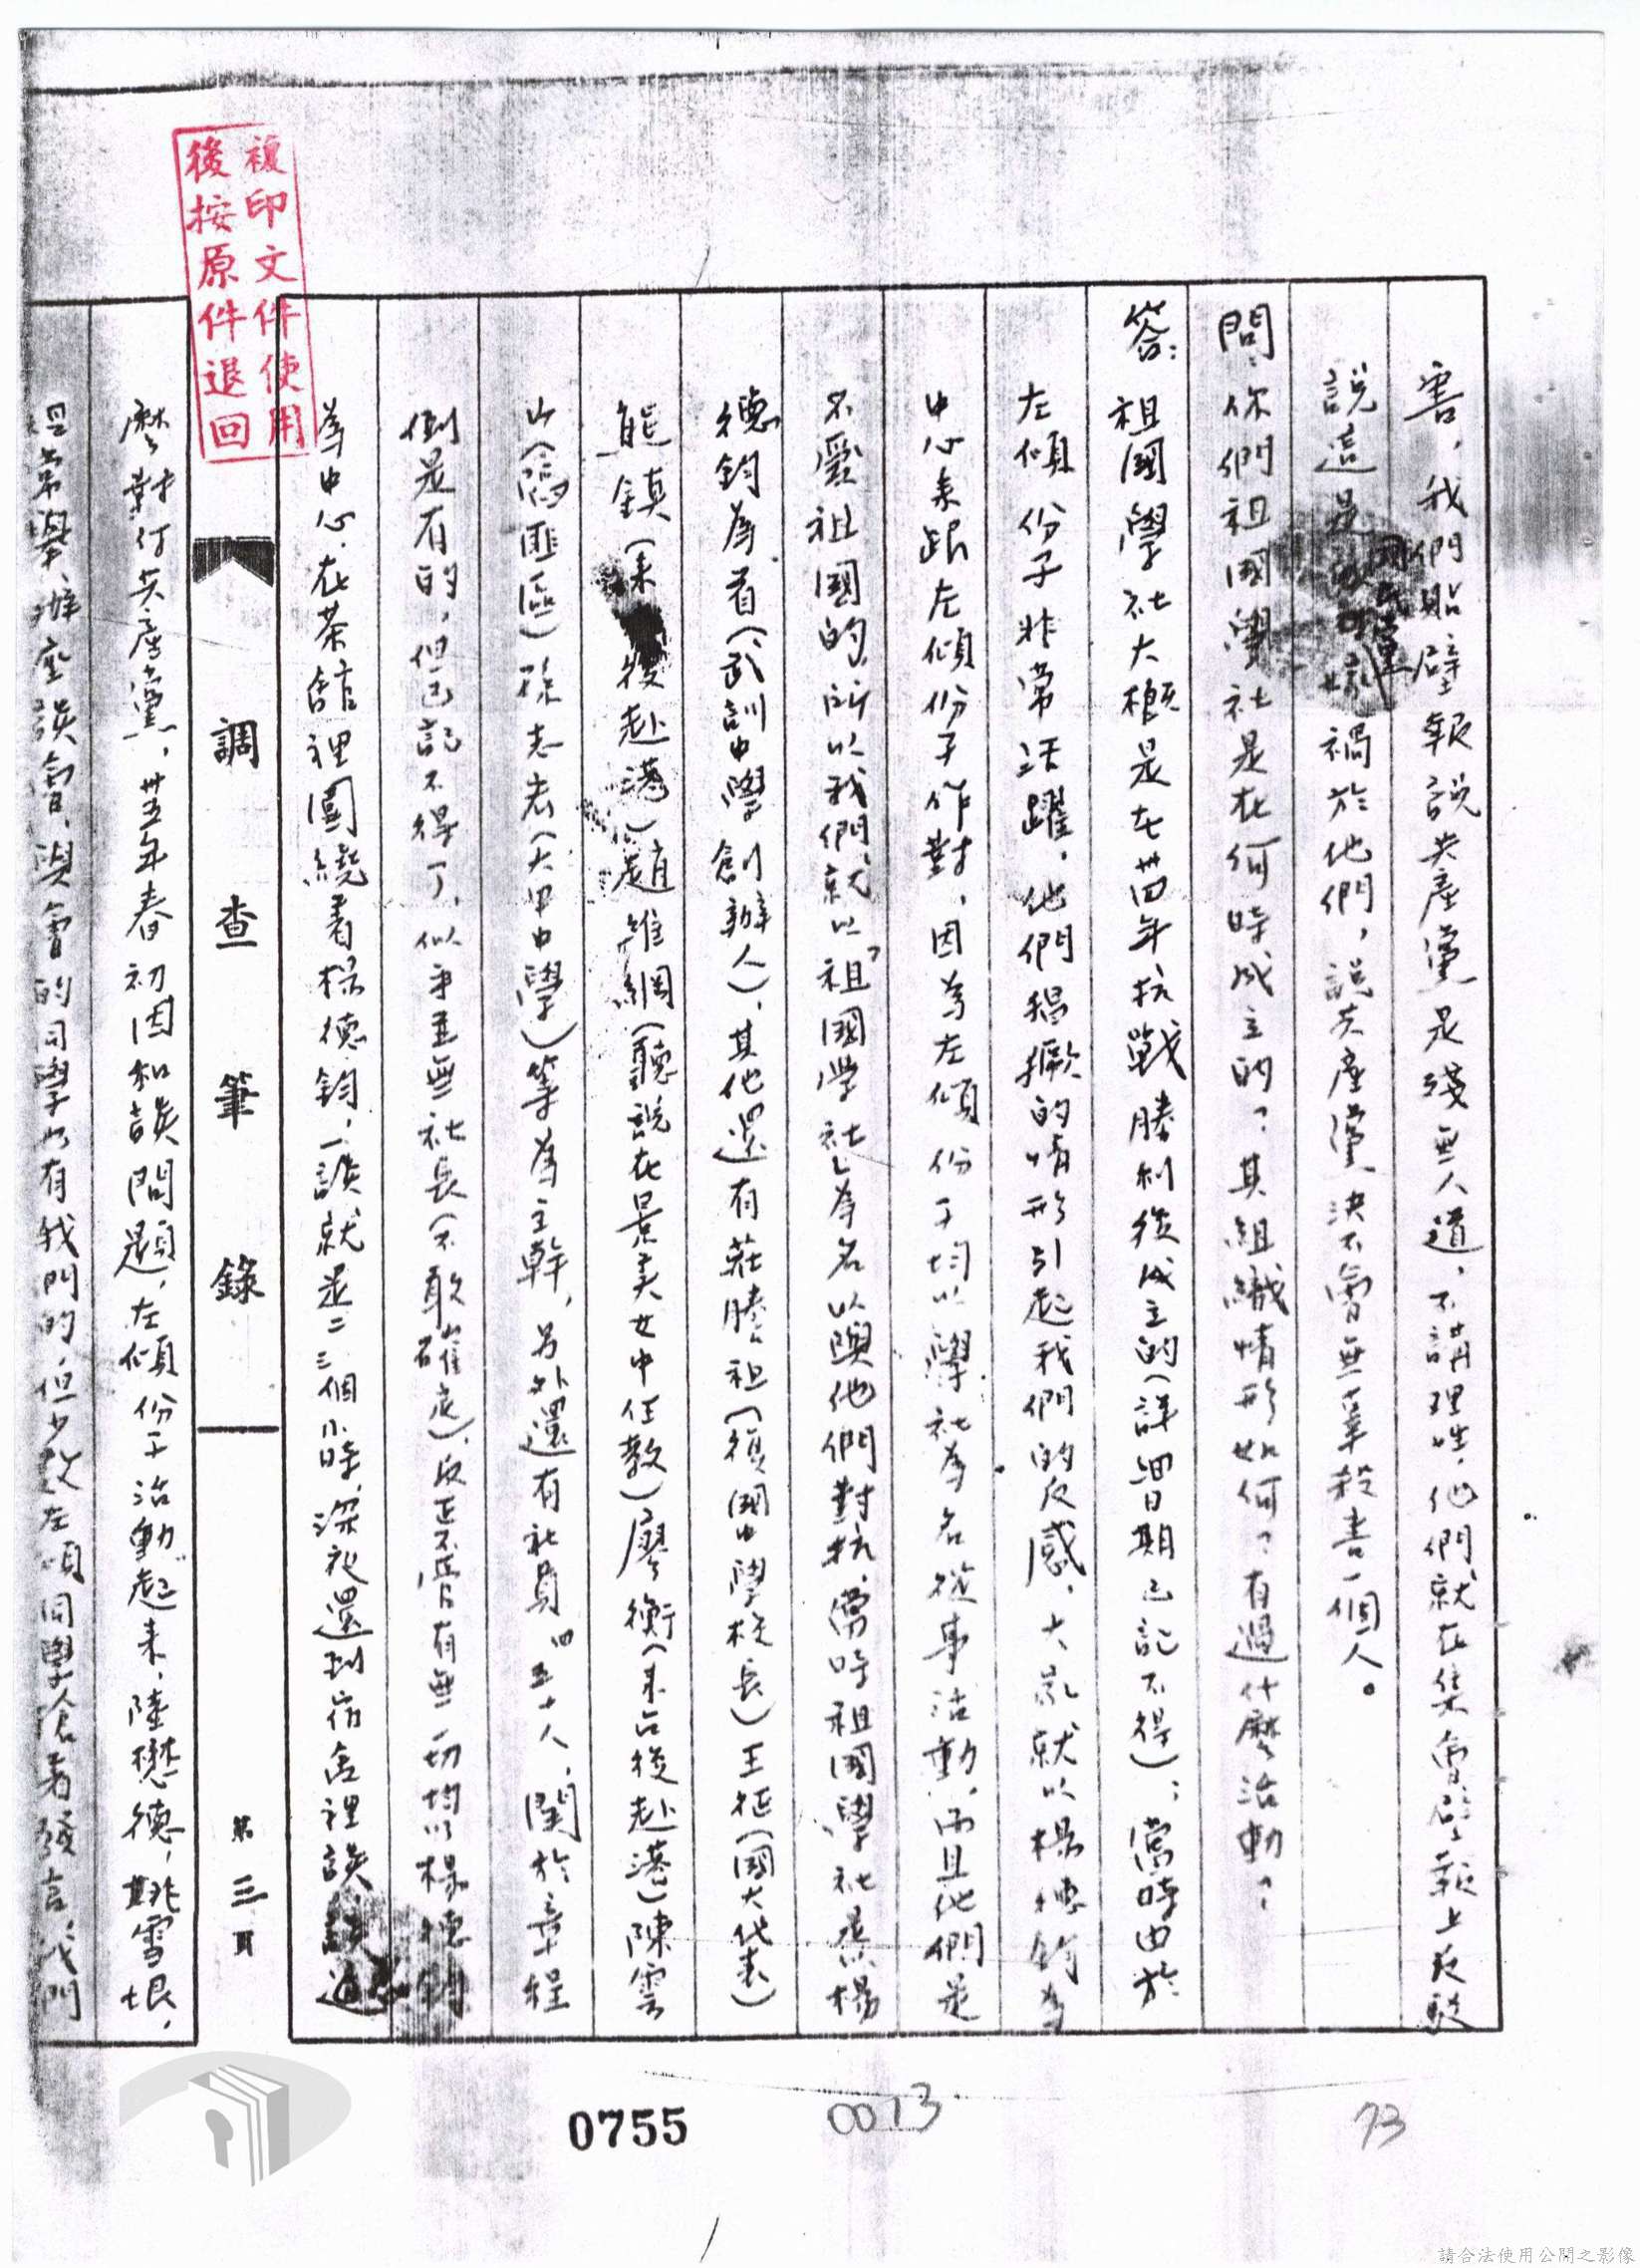 害，我們貼壁報說共產黨是殘無人道，不講理性，他們就在集會壁報上反駁
說這是國民黨嫁禍於他們，說共產黨決不會無辜殺害一個人。
問：你們祖國學社是在何時成立的？其組織情形如何？有過什麼活動？
答：祖國學社大概是在卅四年抗戰勝利後成立的（詳細日期已記不得）；當時由於
左傾份子非常活躍，他們猖獗的情形引起我們的反感，大家就以楊德鈞為
中心來跟左傾份子作對，因為左傾份子均以學社為名從事活動，而且他們是
不愛祖國的，所以我們就以「祖國学社」為名以與他們對抗，當時祖國學社是以楊
德鈞為首（武訓中學創辦人），其他還有莊勝祖（復國中學校長）王柾（國大代表）
熊鎮（來後赴港）趙維綱（聽說在景美女中任教）廖衡（來台後赴港）陳雲
山（陷匪區）孫志（大甲中學）等為主幹，另外還有社員四五十人，関於章程
倒是有的，但已記不得了，似乎並無社長（不敢確定），反正不管有無一切均以楊德鈞
為中心，在茶館裡圍繞着楊德鈞，一談就是二三個小時，深夜還到宿舍裡談，談過
調查筆錄
第三頁
麼對付共產黨，卅五年春初因和談問題，左傾份子活動起來，陸懋德，姚雪垠，
常舉辦座談會，與會的同學也有我門的但少数左傾同學搶着發言，我門
複印文件使用
後按原件退回
0755
0073
73
請合法使用公開之影像